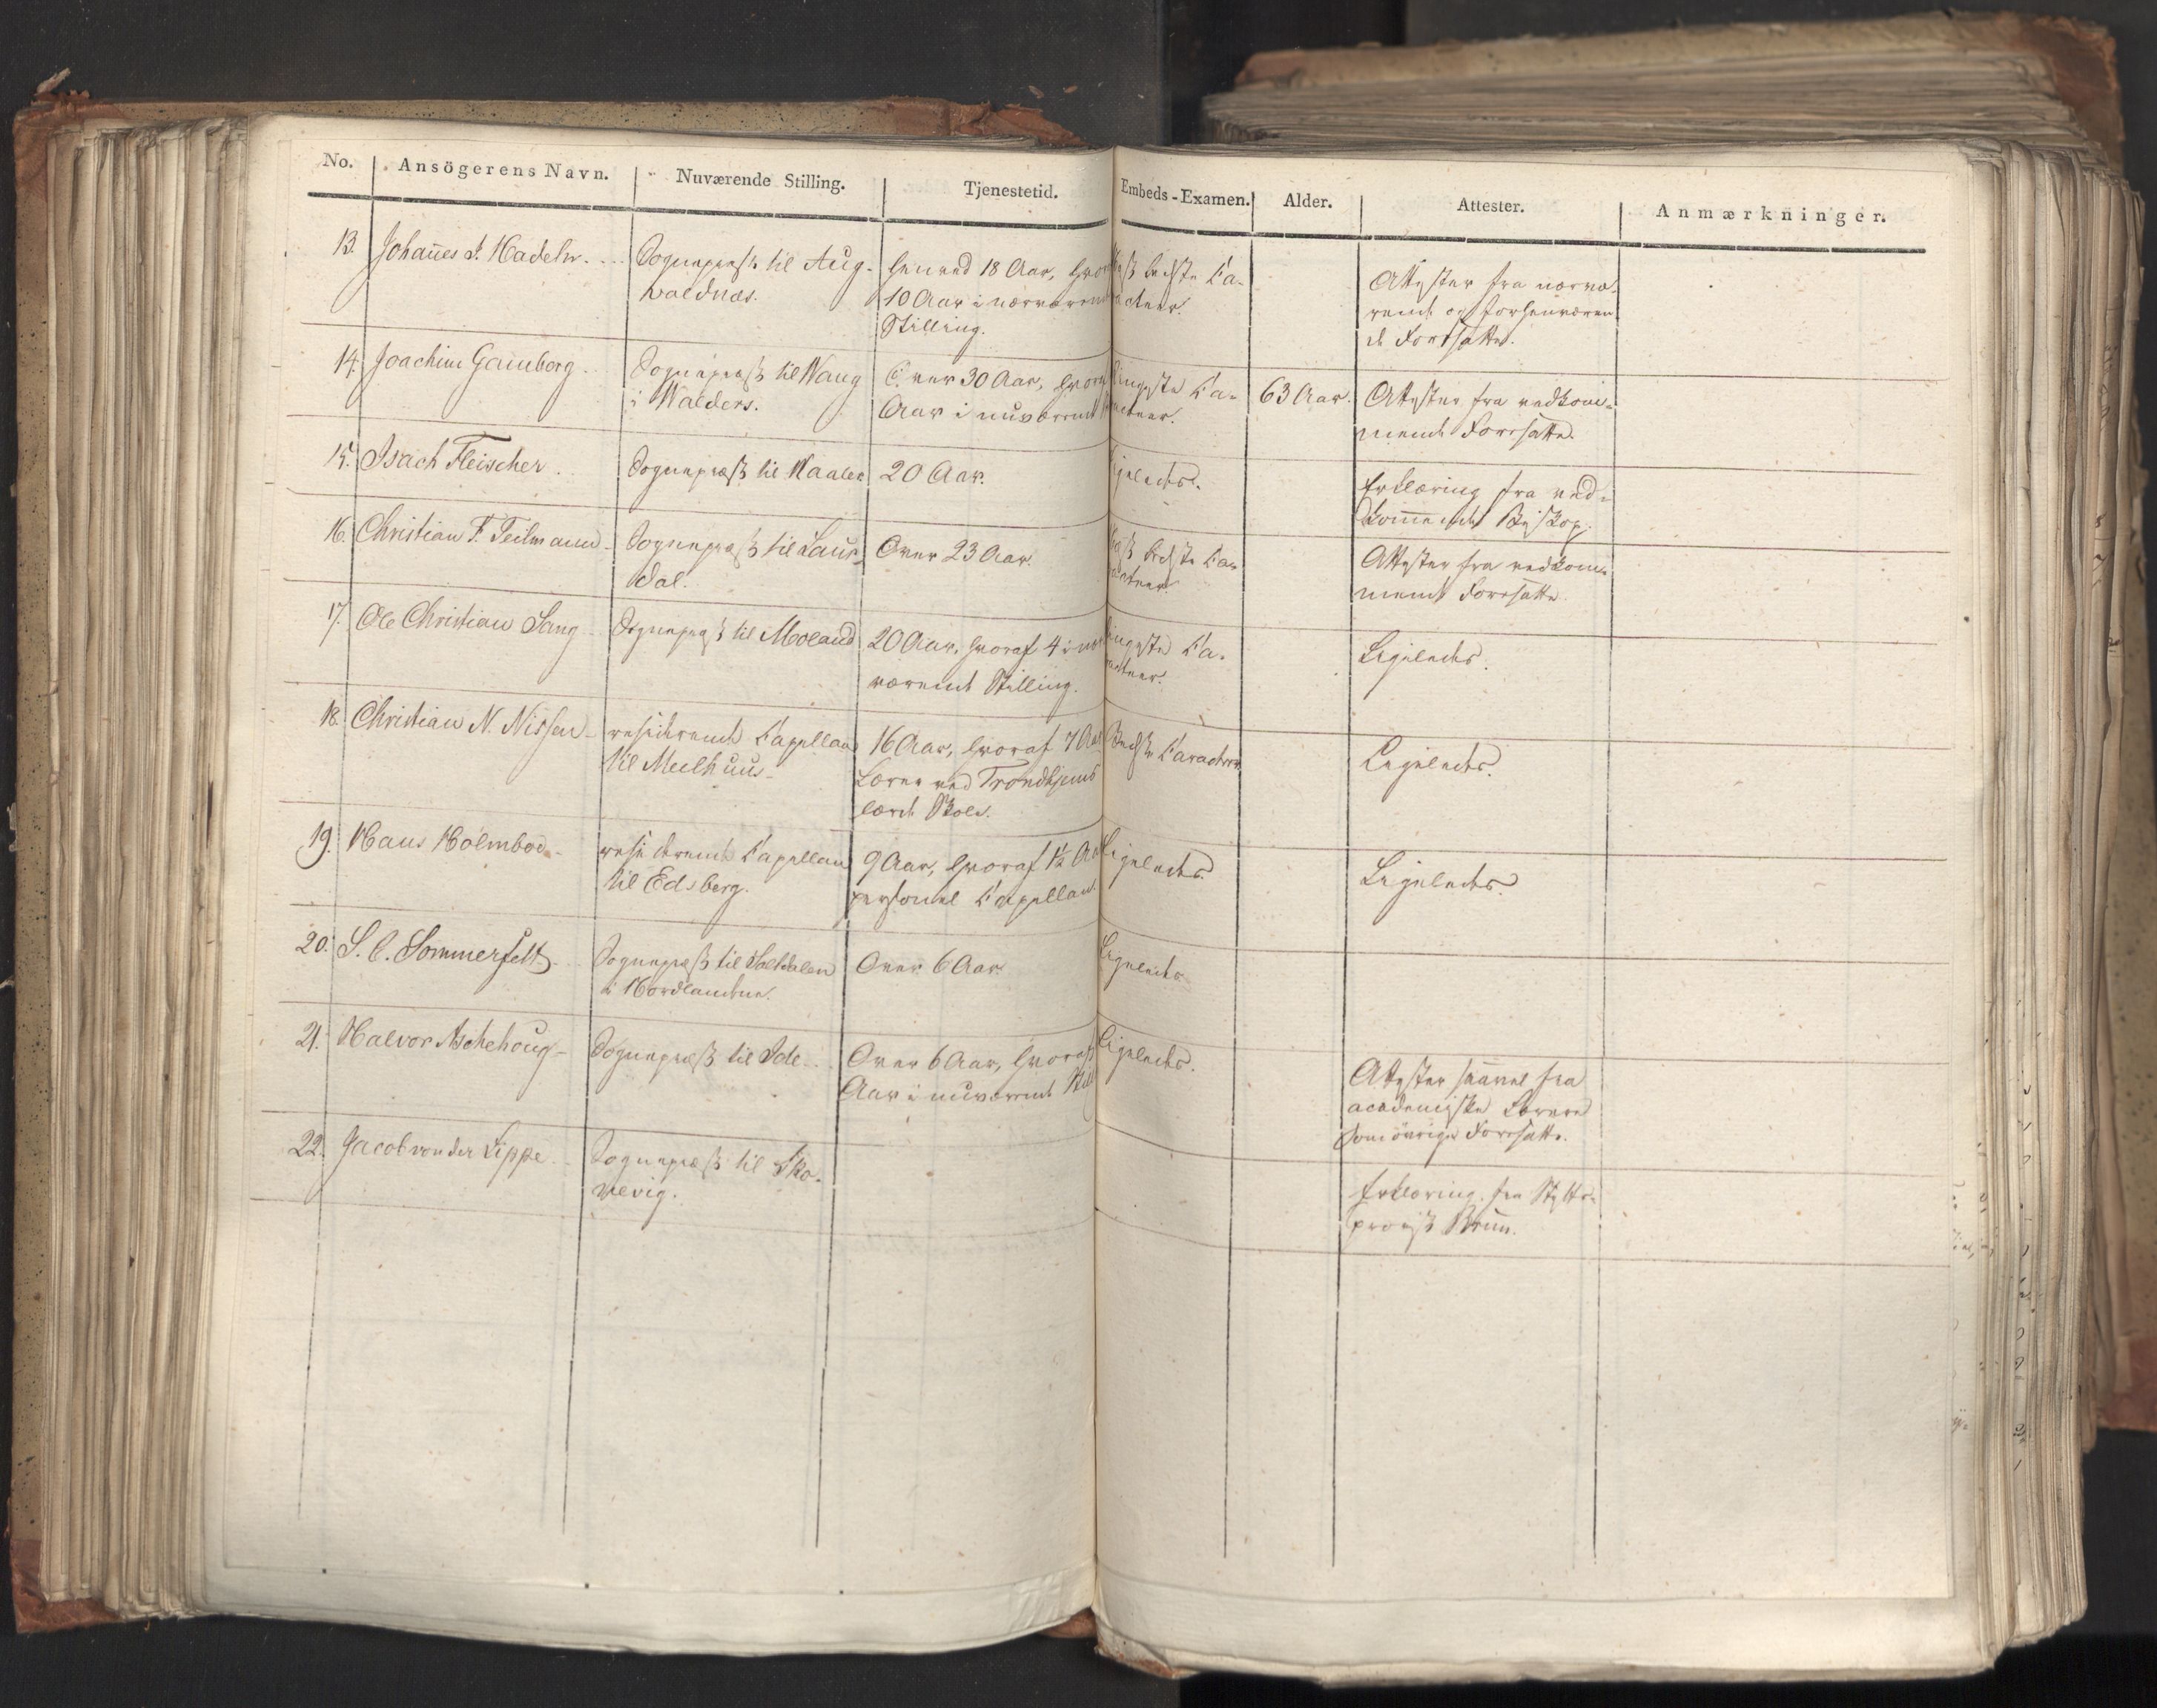 No. Ansögerens Navn. Nuværende Stilling. Tjenestetid. Embeds-Examen. Alder. Attester. Anmærkninger.
13. Johannes J. Hadeln. Sognepræst til Aug-
valdnæs.
henved 18 Aar,
10 Aar i nærværende
Stilling.
bedste Ca-
Attester fra nærvæ-
rende og forhenværen-
de Foresatte.
14. Joachim Gamborg. Sognepræst til Wang
i Walders.
Over 30 Aar,
Aar i nuværende
ringeste Ca-
63 Aar.
Attester fra vedkom-
mende Foresatte.
15. Isach Fleischer. Sognepræst til Vaaler 20 Aar.
Ligeledes.
Erklæring fra ved-
kommende Biskop.
16. Christian F. Teilmann Sognepræst til Laur-
dal.
Over 23 Aar.
bedste Ca-
Attester fra vedkom-
mende Foresatte.
17. Ole Christian Sang Sognepræst til Moland
20 Aar, hvoraf 4 i nær-
værende Stilling.
ringeste Ca-
Ligeledes.
18. Christian N. Nissen residerende Capellan
til Meelhuus
16 Aar, hvoraf 7 Aar
Lærer ved Trondhjems
lærde Skole.
Bedste Caracteer.
Ligeledes.
19. Hans Holmboe residerende Capellan
til Edsberg.
9 Aar, hvoraf 1½ Aar
personel Capellan.
Ligeledes.
Ligeledes.
20. S. C. Sommerfelt Sognepræst til Saltdalen
i Nordlandene.
Over 6 Aar
Ligeledes
21. Halvor Aschehoug Sognepræst til Ide
Over 6 Aar, hvoraf
Aar i nuværende Still
Ligeledes.
Attester saavel fra
academiske Lærere
som øvrige Foresatte.
22. Jacob von der Lippe Sognepræst til Sko-
nevig.
Erklæring fra Stifts-
provst Brun.